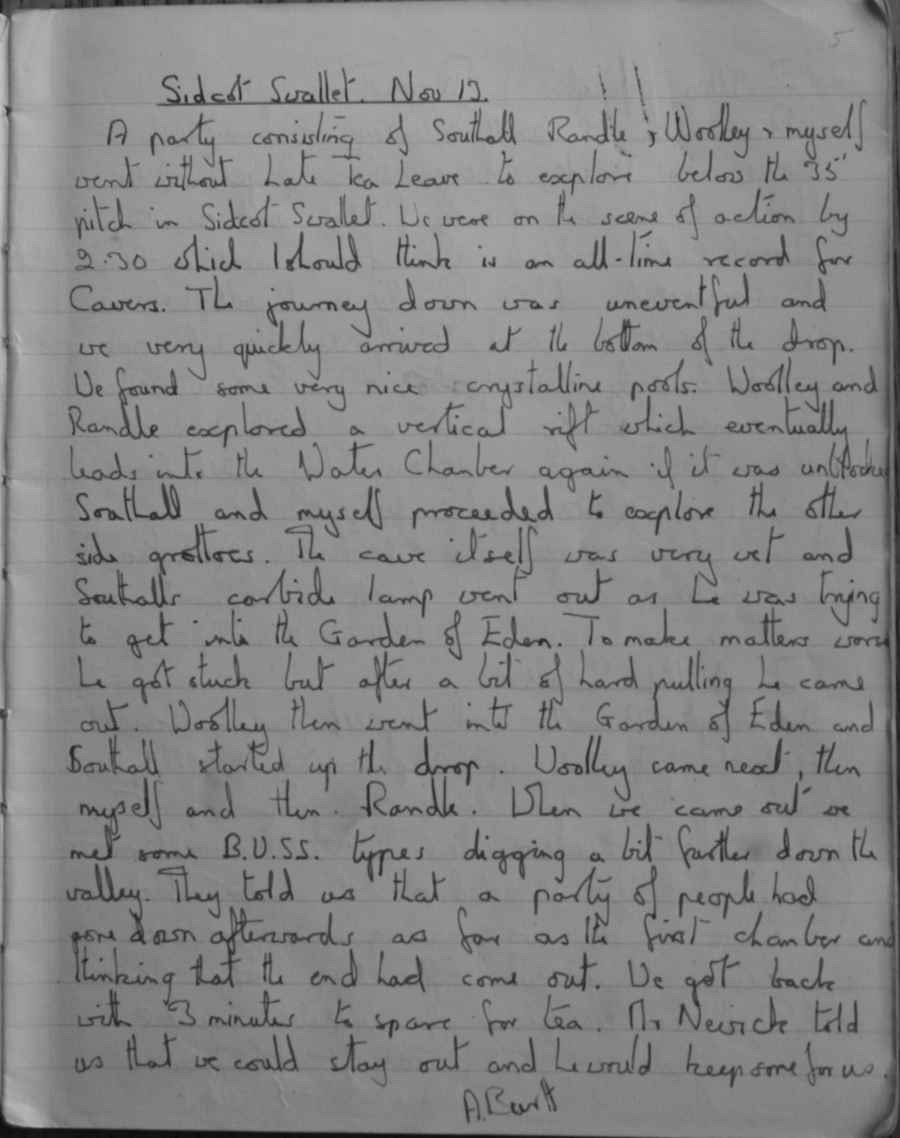 5
Sidcot Swallet. Nov 13.
A party consisting of Southall Randle, Woolley & myself
went without Late Tea Leave to explore below the 35'
pitch in Sidcot Swallet. We were on the scene of action by
2.30 which I should think is an all-time record for
Cavers. The journey down was uneventful and
we very quickly arrived at the bottom of the drop.
We found some very nice crystalline pools. Woolley and
Randle explored a vertical rift which eventually
leads into the Water Chamber again if it was unblocked
Southall and myself proceeded to explore the other
side grottoes. The cave itself was very wet and
Southalls carbide lamp went out as he was trying
to get into the Garden of Eden. To make matters worse
he got stuck but after a bit of hard pulling he came
out. Woolley then went into the Garden of Eden and
Southall started up the drop. Woolley came next, then
myself and then Randle. When we came out we
met some B.U.S.S. types digging a bit further down the
valley. They told us that a party of people had
gone down afterwards as far as the first chamber and
thinking that the end had come out. We got back
with 3 minutes to spare for tea. Mr Newick told
us that we could stay out and he would keep some for us.
A. Burtt